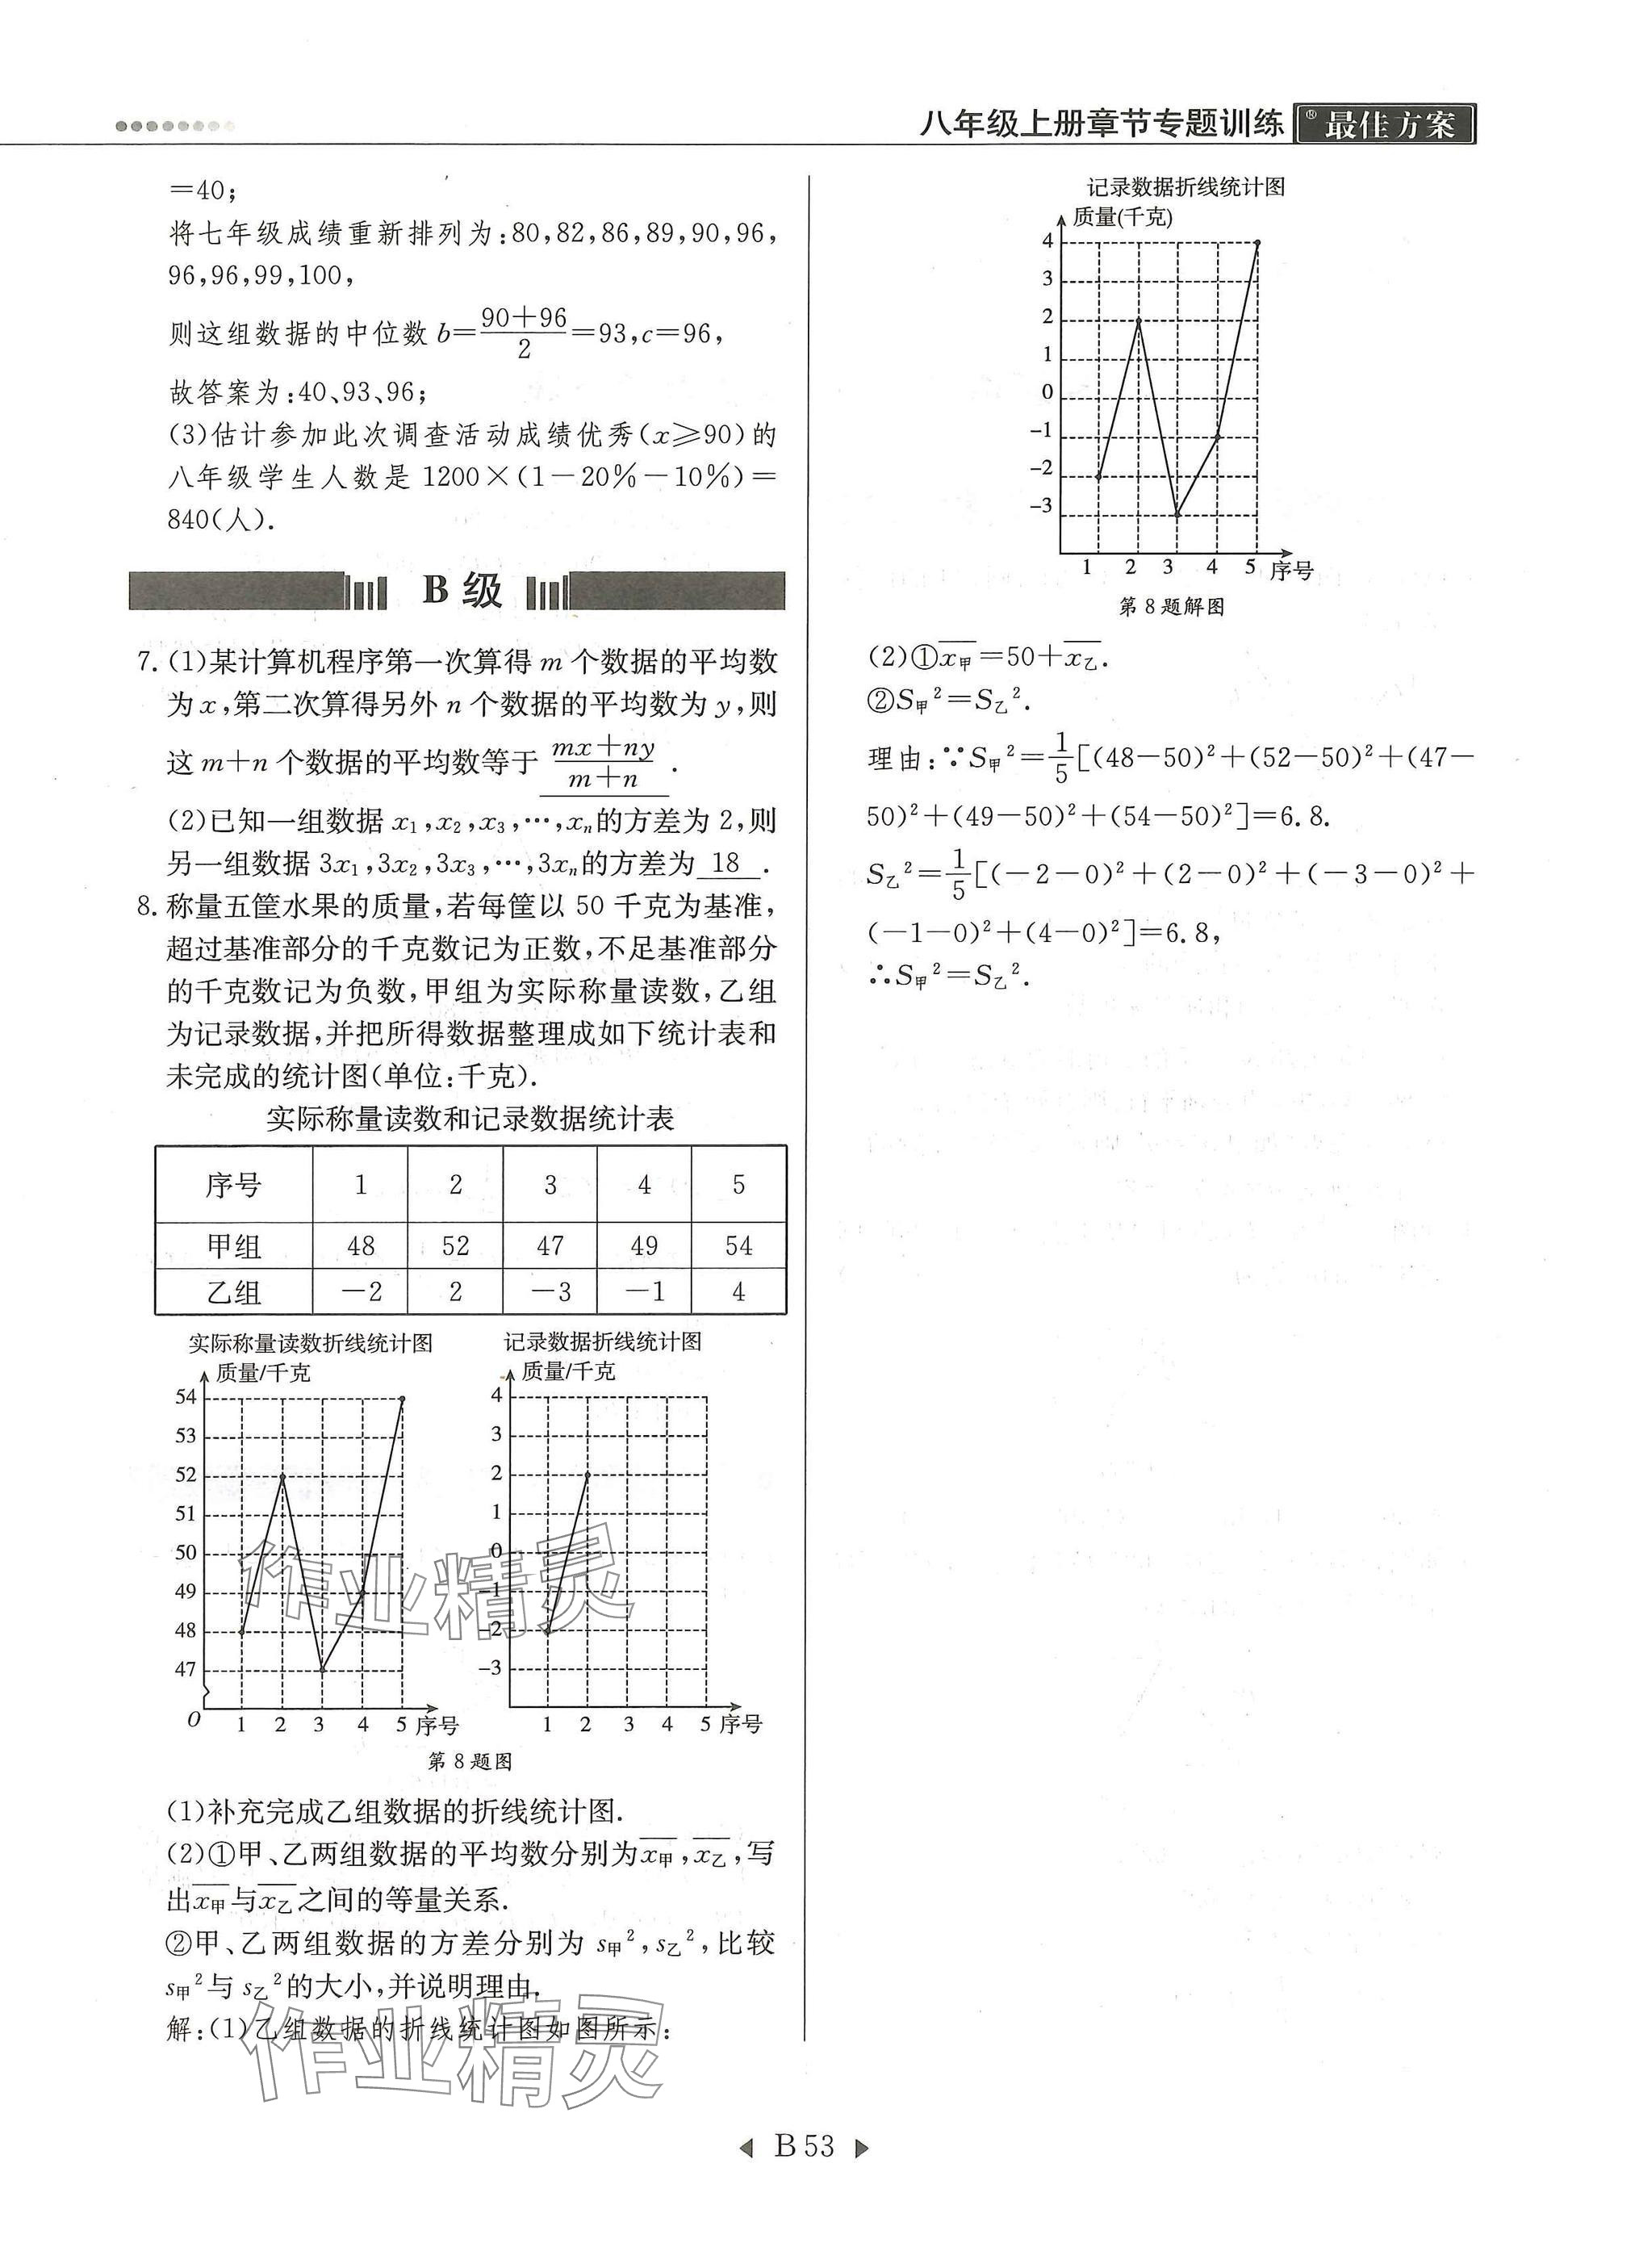 八年级上册章节专题训练 ®最佳方案
=40;
将七年级成绩重新排列为:80,82,86,89,90,96,
96,96,99,100,
则这组数据的中位数 b=\frac{90+96}{2}=93,c=96,
故答案为:40、93、96;
(3)估计参加此次调查活动成绩优秀(x⩾90)的
八年级学生人数是 1200×(1-20%-10%)=
840(人).
B 级
7. (1)某计算机程序第一次算得 m 个数据的平均数
为 x,第二次算得另外 n 个数据的平均数为 y,则
这 m+n 个数据的平均数等于 \frac{mx+ny}{m+n} .
(2)已知一组数据 x₁,x₂,x₃,…,xₙ的方差为 2,则
另一组数据 3x₁,3x₂,3x₃,…,3xₙ的方差为 18 .
8. 称量五筐水果的质量,若每筐以 50 千克为基准,
超过基准部分的千克数记为正数,不足基准部分
的千克数记为负数,甲组为实际称量读数,乙组
为记录数据,并把所得数据整理成如下统计表和
未完成的统计图(单位:千克).
实际称量读数和记录数据统计表
序号 1 2 3 4 5
甲组 48 52 47 49 54
乙组 -2 2 -3 -1 4
实际称量读数折线统计图
质量/千克
54
53
52
51
50
49
48
47
O 1 2 3 4 5 序号
记录数据折线统计图
质量/千克
4
3
2
1
0
-1
-2
-3
1 2 3 4 5 序号
第 8 题图
作业精灵
(1)补充完成乙组数据的折线统计图.
(2)①甲、乙两组数据的平均数分别为\overline{x甲},\overline{x乙},写
出\overline{x甲}与\overline{x乙}之间的等量关系.
②甲、乙两组数据的方差分别为 s甲²,s乙²,比较
s甲²与 s乙²的大小,并说明理由.
解:(1)乙组数据的折线统计图如图所示:
作业精灵
记录数据折线统计图
质量(千克)
4
3
2
1
0
-1
-2
-3
1 2 3 4 5 序号
第 8 题解图
(2)①\overline{x甲}=50+\overline{x乙}.
②S甲²=S乙².
理由:∵S甲²=\frac{1}{5}[(48-50)²+(52-50)²+(47-
50)²+(49-50)²+(54-50)²]=6.8.
S乙²=\frac{1}{5}[(-2-0)²+(2-0)²+(-3-0)²+
(-1-0)²+(4-0)²]=6.8,
∴S甲²=S乙².
B 53